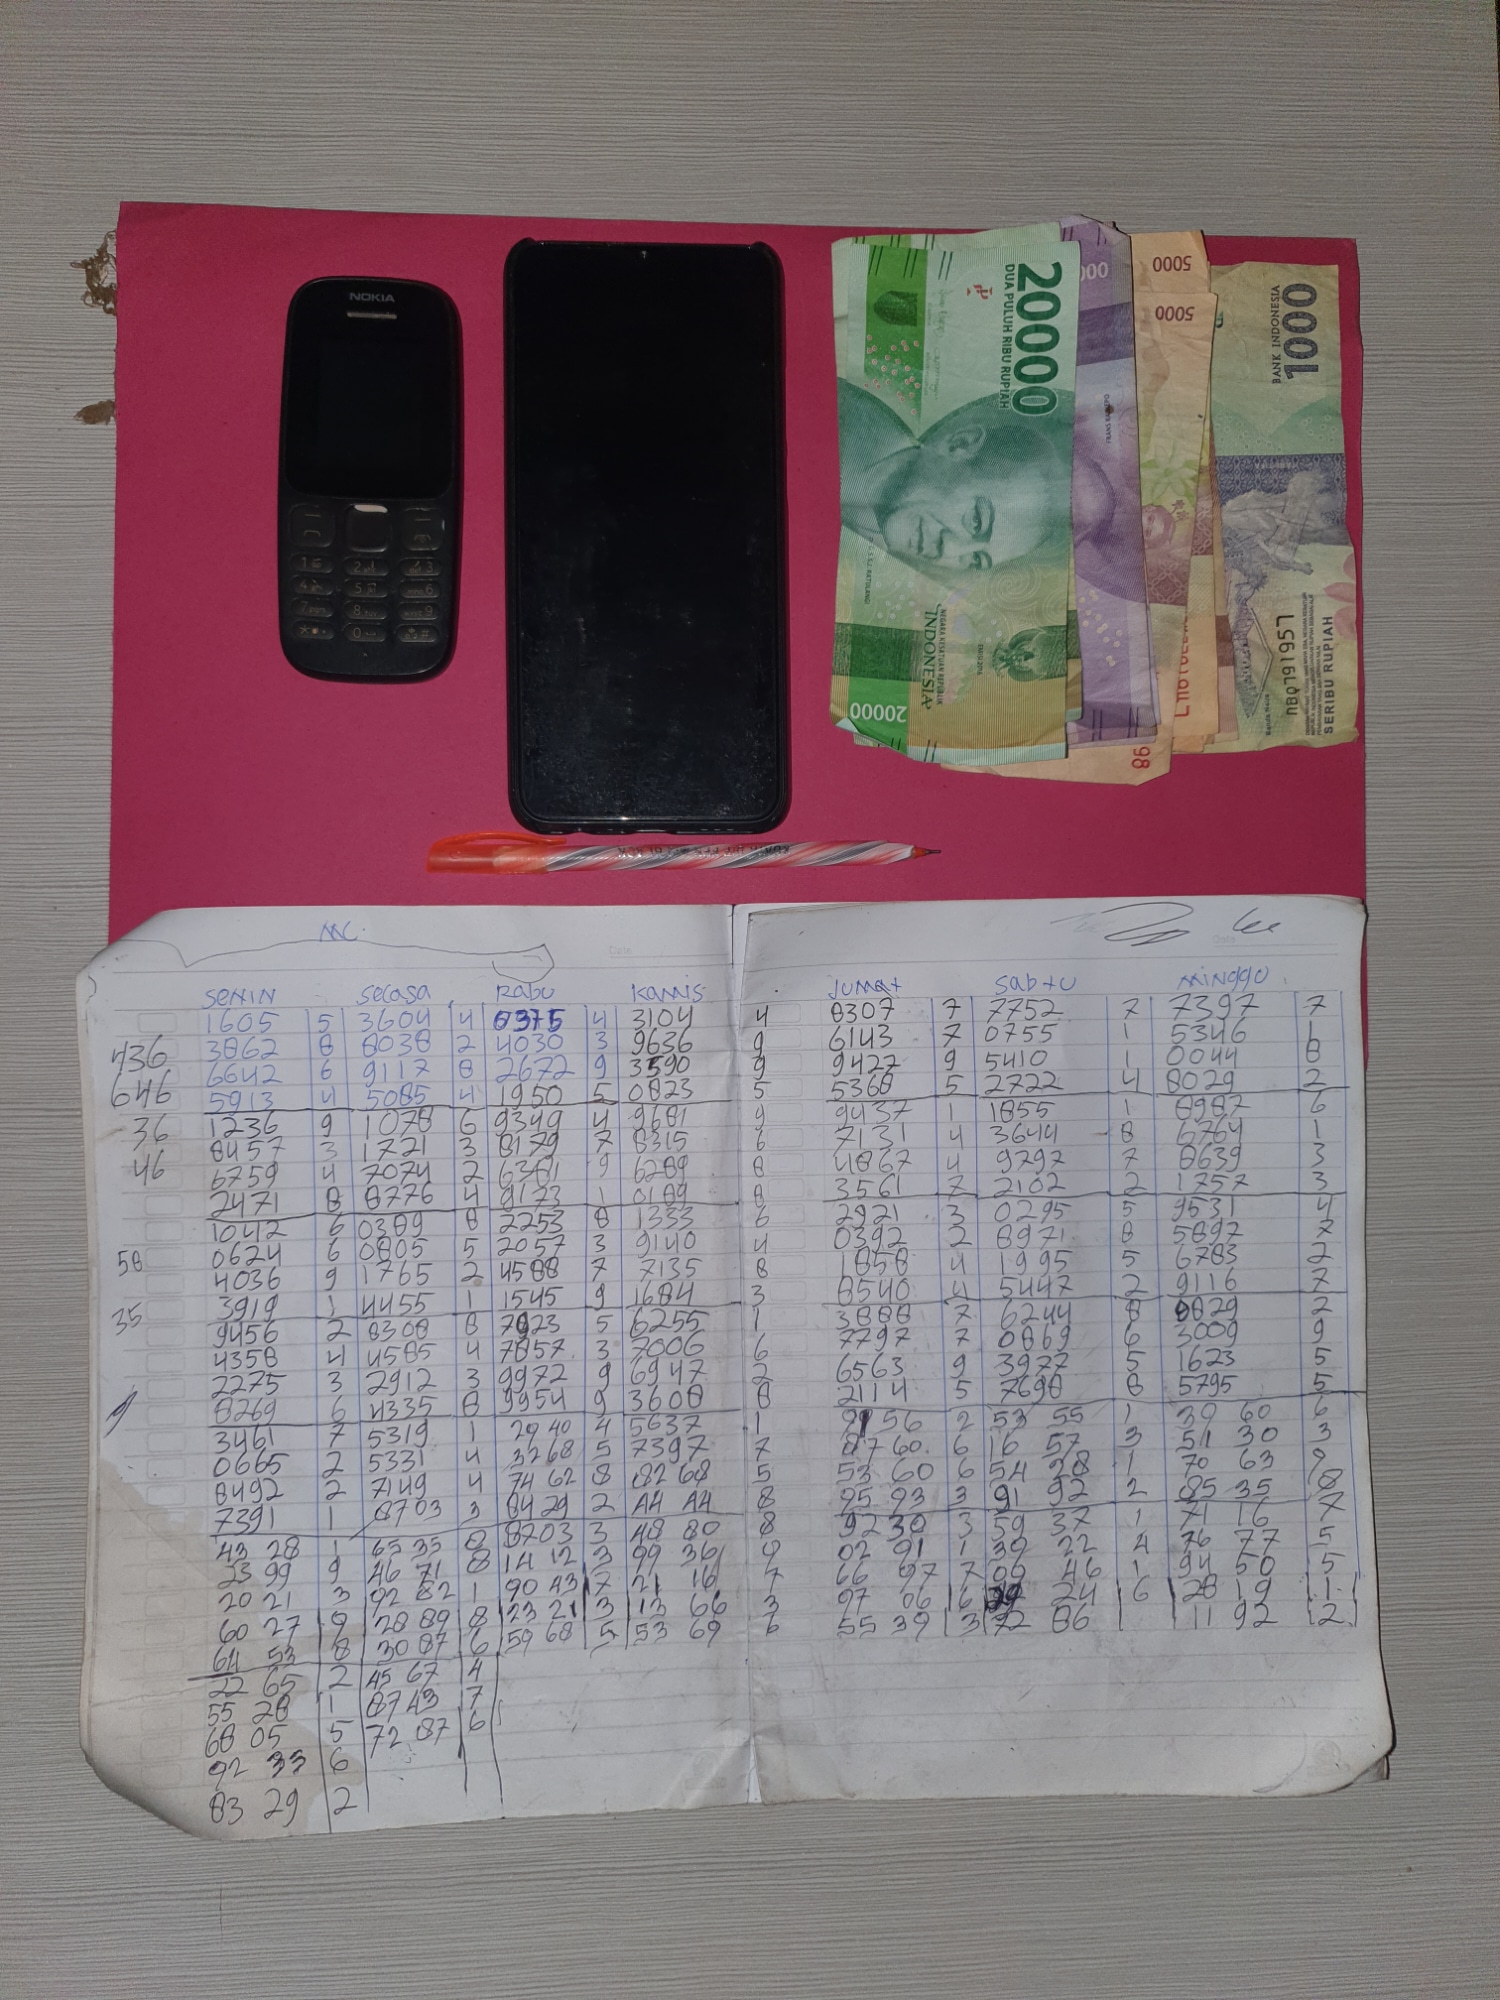 NOKIA
20000
DUA PULUH RIBU RUPIAH
NEGARA KESATUAN REPUBLIK
INDONESIA
20000
5000
5000
BANK INDONESIA
1000
NBQ791957
SERIBU RUPIAH
98
MC.
Date
SENIN SELASA RABU KAMIS JUMAT SABTU MINGGO
1605 5 3604 4 0375 4 3104 4 8307 7 7752 7 7397 7
436 3862 8 8038 2 4030 3 9636 9 6143 7 0755 1 5346 1
6642 6 9117 8 2672 9 3590 9 9427 9 5410 1 0044 8
646 5913 4 5085 4 1950 5 0823 5 5368 5 2722 4 8029 2
36 1236 9 1078 6 9349 4 9681 9 9437 1 1855 1 8987 6
8457 3 1721 3 8179 7 8315 6 7131 4 3644 8 6764 1
46 6759 4 7074 2 6381 9 6289 8 4867 4 9797 7 8639 3
2471 8 8776 4 9173 1 0189 8 3561 7 2102 2 1757 3
1042 6 0389 8 2253 8 1333 6 2921 3 0295 5 9531 4
58 0624 6 0805 5 2057 3 9140 4 0392 2 8971 8 5897 7
4036 9 1765 2 4588 7 7135 8 1858 4 1995 5 6783 2
35 3919 1 4455 1 1545 9 1684 3 8540 4 5447 2 9116 7
9456 2 8308 8 7923 5 6255 1 3888 7 6244 8 0829 2
4358 4 4585 4 7857 3 7006 6 7797 7 0869 6 3009 9
2275 3 2912 3 9972 9 6947 2 6563 9 3977 5 1623 5
8269 6 4335 8 9954 9 3608 8 2114 5 7698 8 5795 5
3461 7 5319 1 29 40 4 5637 1 56 2 53 55 1 39 60 6
0665 2 5331 4 32 68 5 7397 7 87 60 6 16 57 3 51 30 3
8492 2 7149 4 74 62 8 82 68 5 53 60 6 54 28 1 70 63 9
7391 1 8703 3 84 29 2 A4 A4 8 95 93 3 91 92 2 85 35 8
43 28 1 65 35 8 8703 3 48 80 8 92 30 3 59 37 1 71 16 7
23 99 9 46 71 8 14 12 3 99 36 9 02 91 1 39 22 4 76 77 5
20 21 3 92 82 1 90 43 7 21 16 7 66 97 7 09 46 1 94 50 5
60 27 9 28 89 8 23 21 3 13 66 3 97 06 6 24 6 28 19 1
64 53 8 30 87 6 59 68 5 53 69 6 55 39 3 72 86 11 92 2
22 65 2 45 67 4
55 28 1 87 43 7
68 05 5 72 87 6
92 33 6
83 29 2